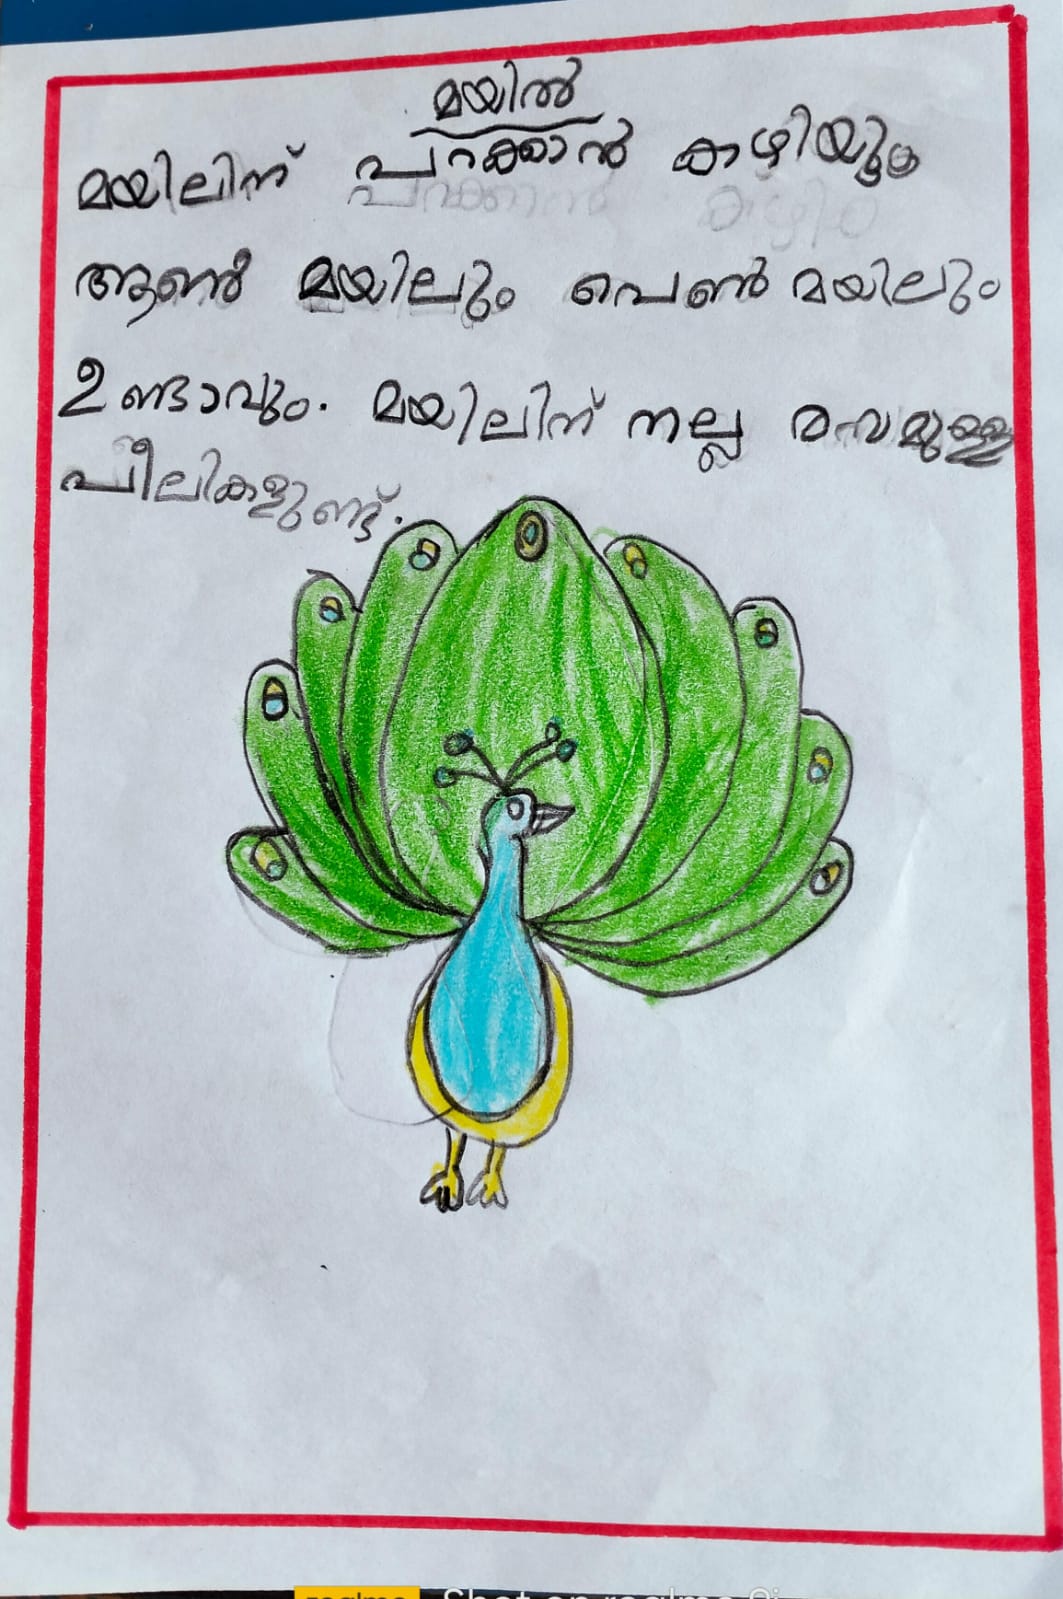 മയിൽ
മയിലിന് പറക്കാൻ കഴിയും
ആൺ മയിലും പെൺ മയിലും
ഉണ്ടാവും. മയിലിന് നല്ല രസമുള്ള
പീലികളുണ്ട്.
realme Shot on realme 9i